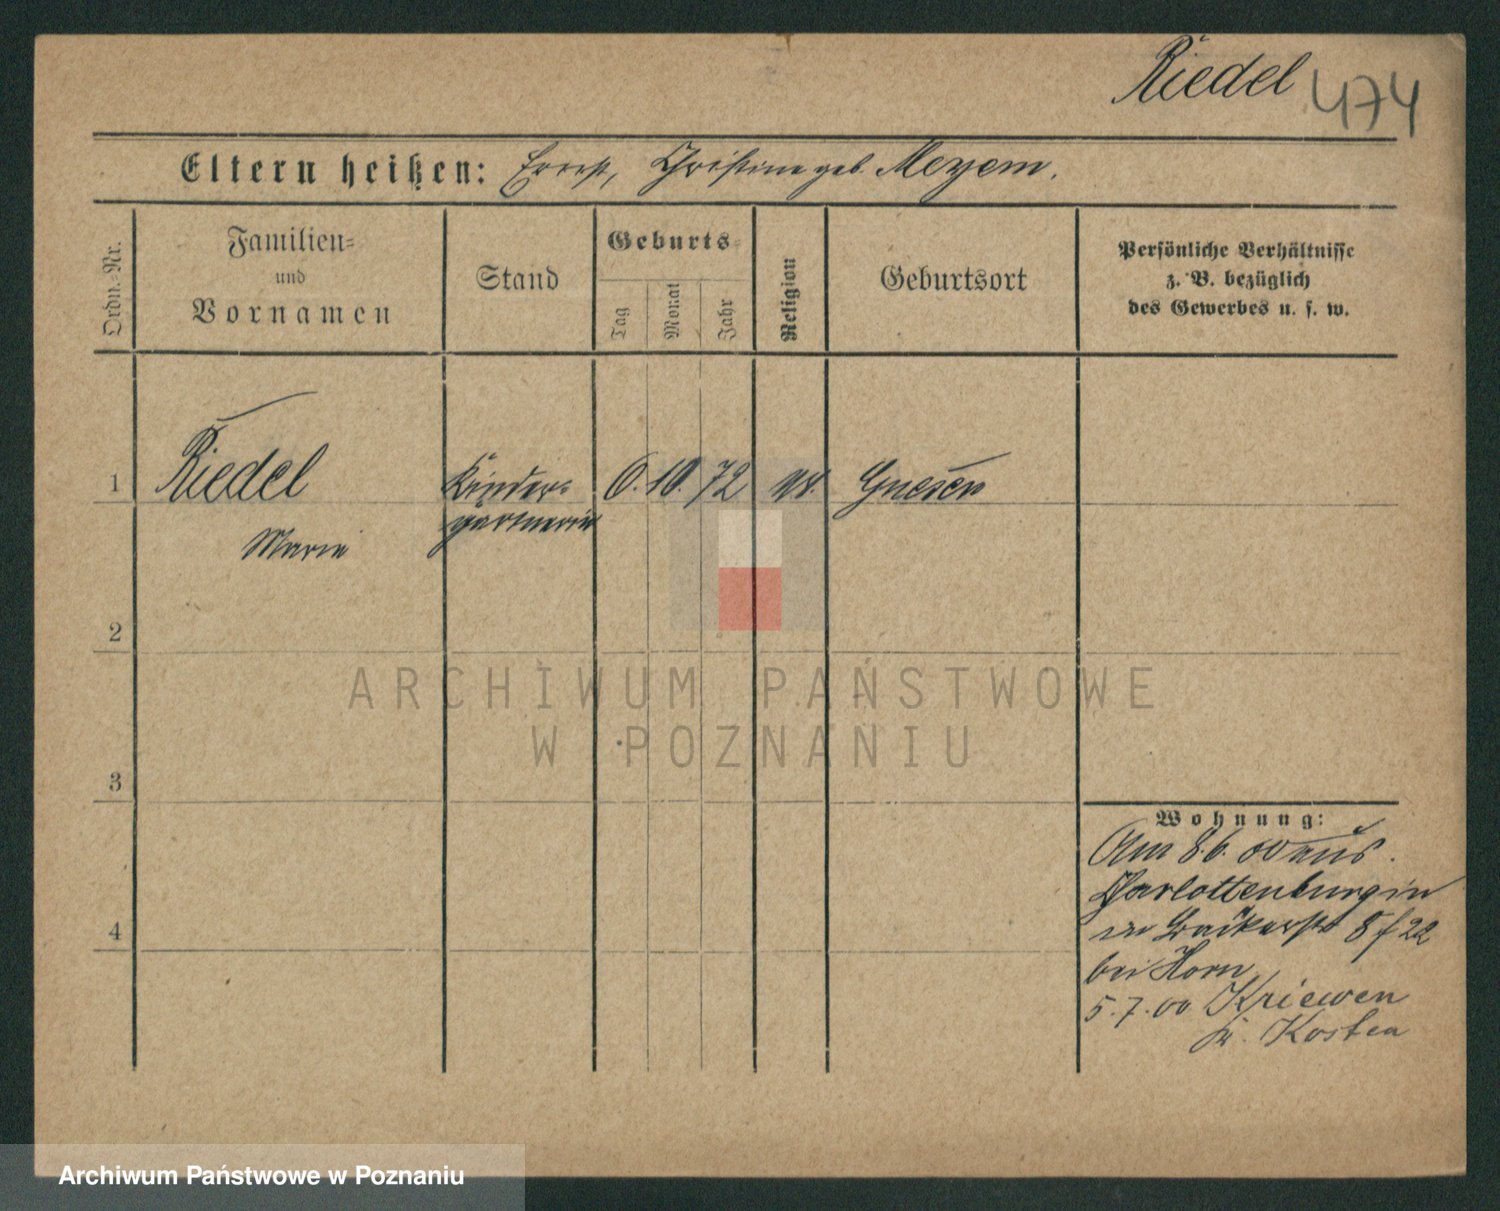 Riedel 474
Eltern heißen: Ernst, Christine geb. Meyem.
Ordn.-Nr.
Familien-
und
Vornamen
Stand
Geburts-
Tag
Monat
Jahr
Religion
Geburtsort
Persönliche Verhältnisse
z. B. bezüglich
des Gewerbes u. s. w.
1
Riedel
Marie
Kinder-
gärtnerin
6. 10. 72
ev.
Gnesen
2
3
4
Wohnung:
Am 8.6. 00 aus
Charlottenburg in
8 f 22
bei Horn
5.7.00 Kriewen
Kr. Kosten
ARCHIWUM PAŃSTWOWE
W POZNANIU
Archiwum Państwowe w Poznaniu